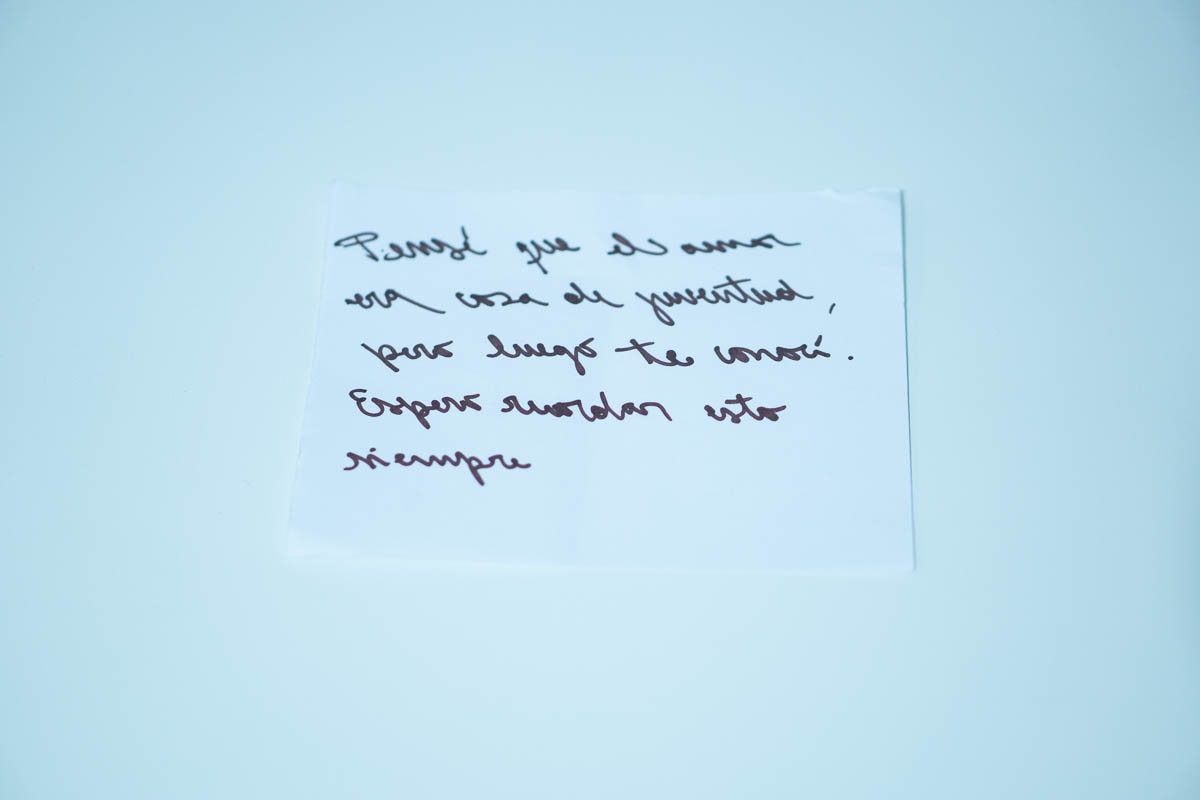 Pensé que el amor
era cosa de juventud,
pero luego te conocí.
Espero recordar esto
siempre